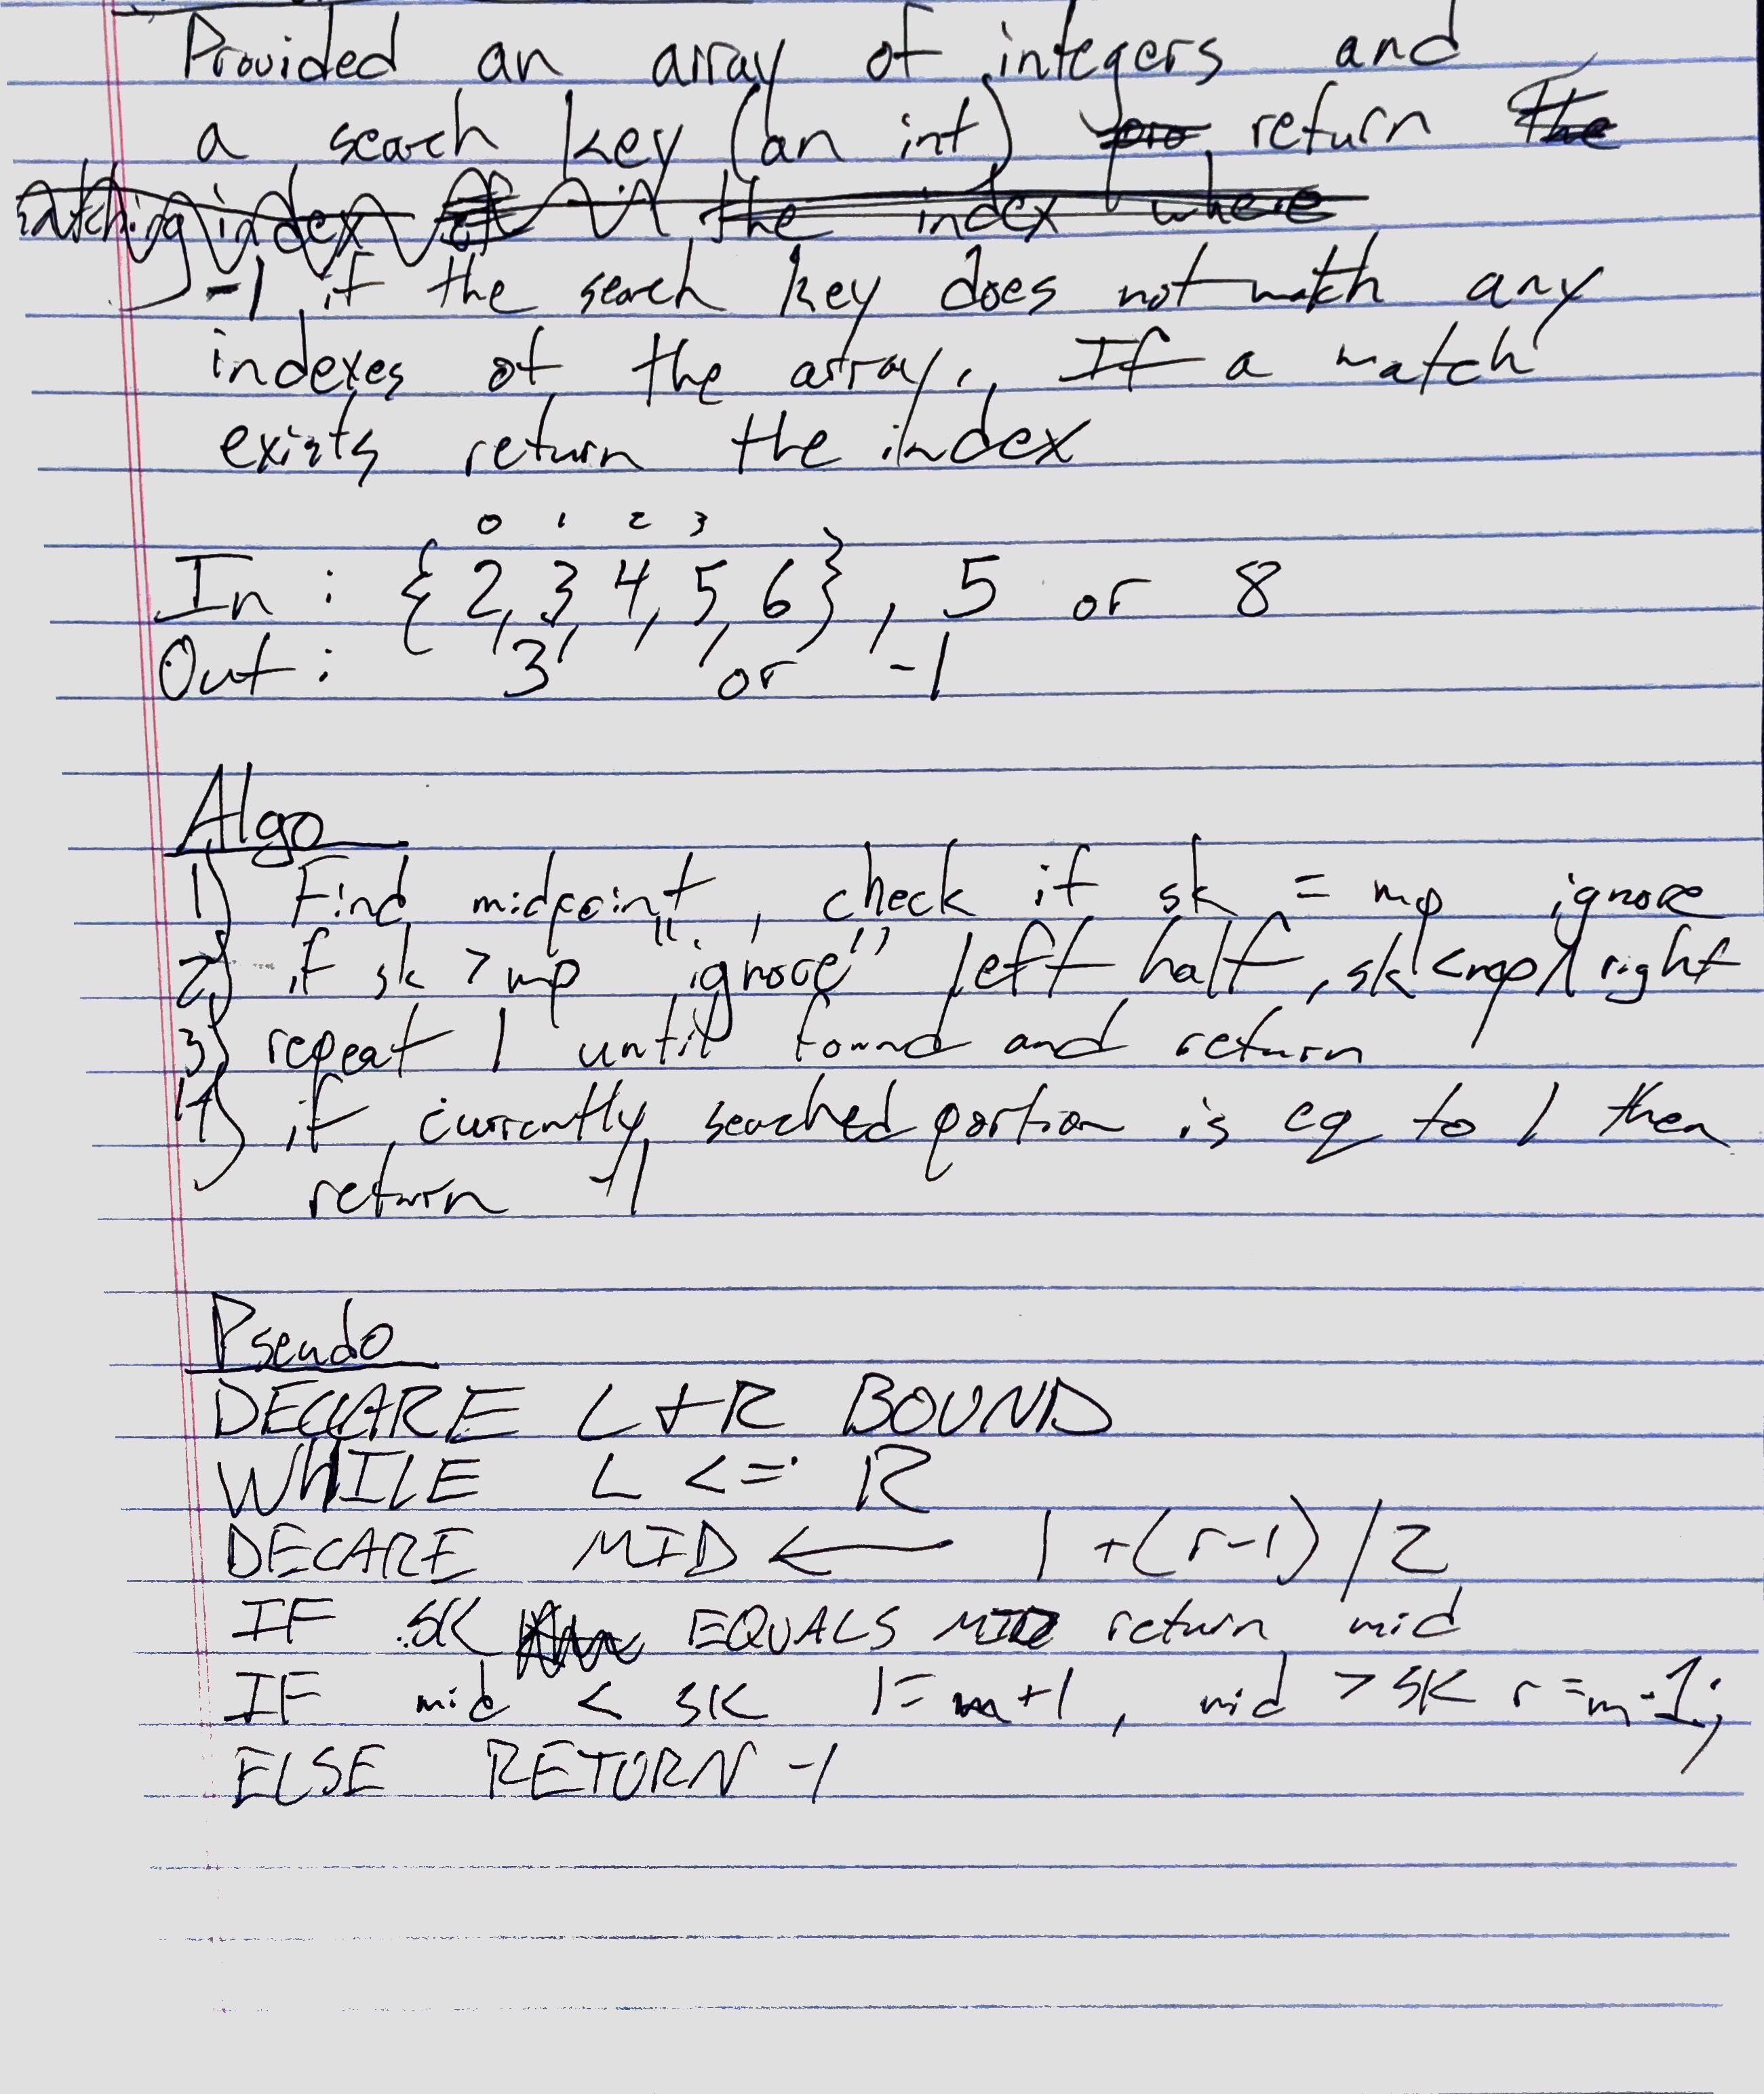 Provided an array of integers and
a search key (an int) pro return The
matching index of the index where
-1 if the search key does not match any
indexes of the array. If a match
exists return the index
0 1 2 3
In : {2, 3, 4, 5, 6} , 5 or 8
Out : 3 or -1
Algo
1) Find midpoint, check if sk = mp
2) if sk > mp "ignore" left half, sk < mp ignore right
3) repeat 1 until found and return
4) if currently searched portion is eq to 1 then
return -1
Pseudo
DECLARE L + R BOUND
WHILE L <= R
DECARE MID ← l + (r-l) / 2
IF SK EQUALS MID return mid
IF mid < SK l = m+1, mid > SK r = m-1;
ELSE RETURN -1